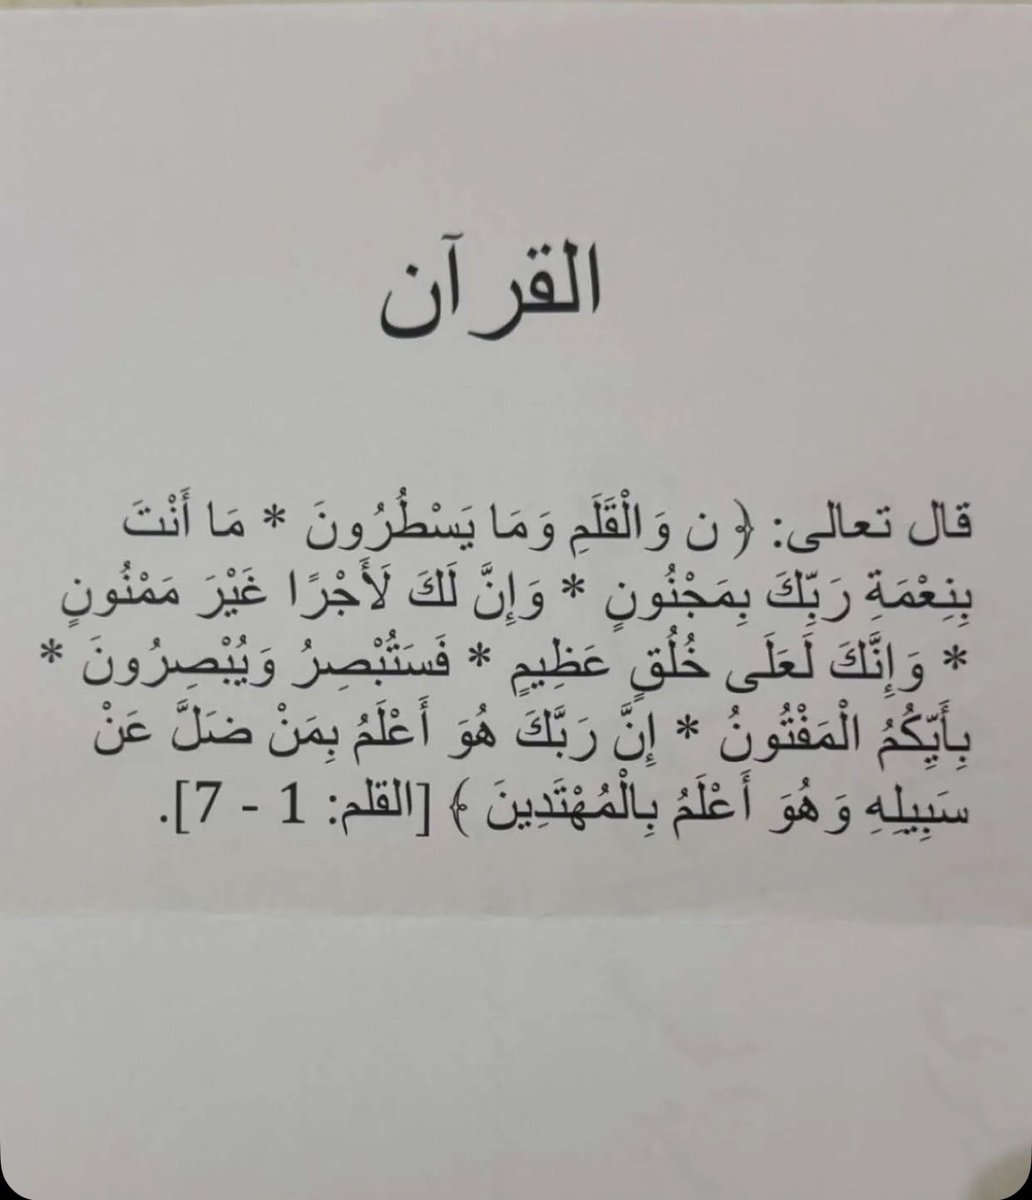 القرآن
قال تعالى: ﴿ ن وَالْقَلَمِ وَمَا يَسْطُرُونَ * مَا أَنْتَ
بِنِعْمَةِ رَبِّكَ بِمَجْنُونٍ * وَإِنَّ لَكَ لَأَجْرًا غَيْرَ مَمْنُونٍ
* وَإِنَّكَ لَعَلَى خُلُقٍ عَظِيمٍ * فَسَتُبْصِرُ وَيُبْصِرُونَ *
بِأَيِّكُمُ الْمَفْتُونُ * إِنَّ رَبَّكَ هُوَ أَعْلَمُ بِمَنْ ضَلَّ عَنْ
سَبِيلِهِ وَهُوَ أَعْلَمُ بِالْمُهْتَدِينَ ﴾ [القلم: 1 - 7].